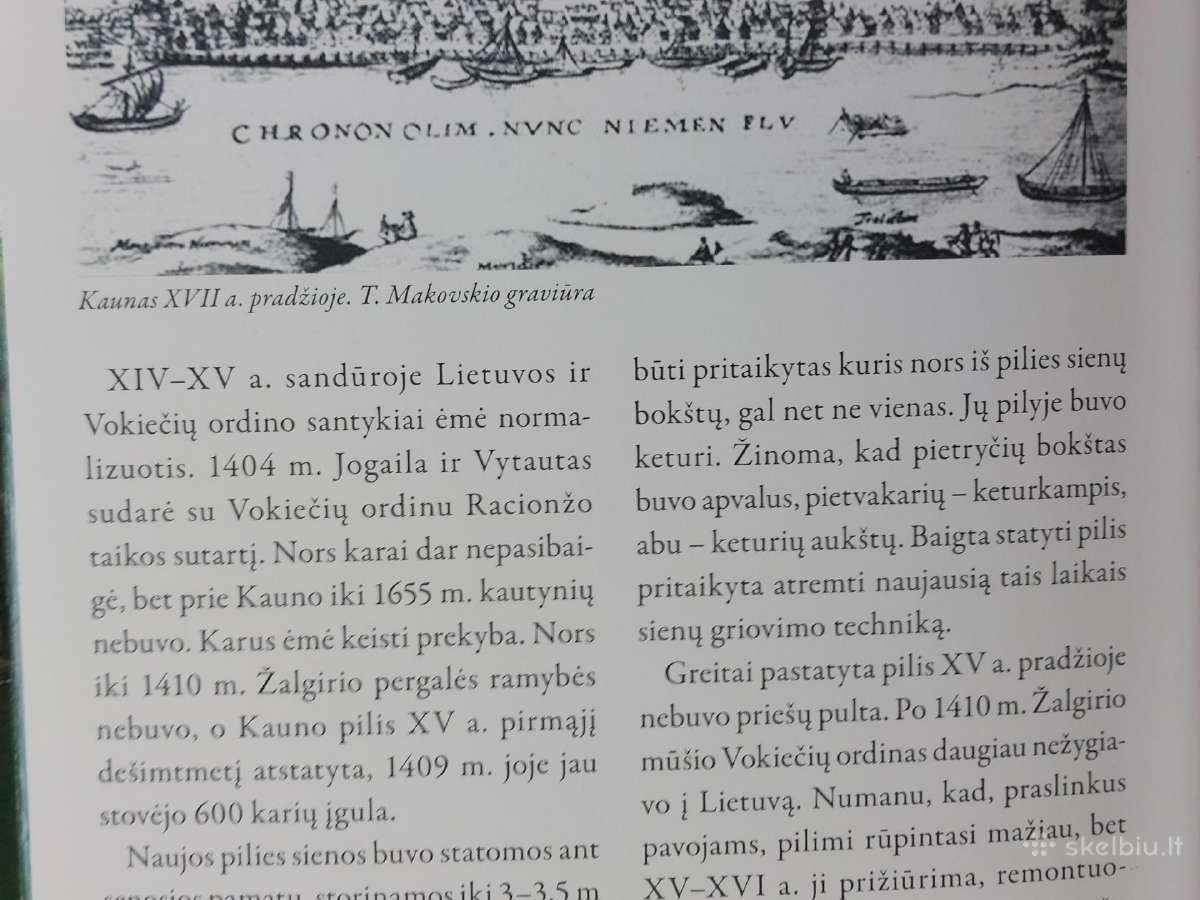 CHRONON OLIM . NVNC NIEMEN FLV
Meridies
Kaunas XVII a. pradžioje. T. Makovskio graviūra
XIV–XV a. sandūroje Lietuvos ir
Vokiečių ordino santykiai ėmė norma-
lizuotis. 1404 m. Jogaila ir Vytautas
sudarė su Vokiečių ordinu Racionžo
taikos sutartį. Nors karai dar nepasibai-
gė, bet prie Kauno iki 1655 m. kautynių
nebuvo. Karus ėmė keisti prekyba. Nors
iki 1410 m. Žalgirio pergalės ramybės
nebuvo, o Kauno pilis XV a. pirmąjį
dešimtmetį atstatyta, 1409 m. joje jau
stovėjo 600 karių įgula.
Naujos pilies sienos buvo statomos ant
senosios pamatų, storinamos iki 3–3,5 m
būti pritaikytas kuris nors iš pilies sienų
bokštų, gal net ne vienas. Jų pilyje buvo
keturi. Žinoma, kad pietryčių bokštas
buvo apvalus, pietvakarių – keturkampis,
abu – keturių aukštų. Baigta statyti pilis
pritaikyta atremti naujausią tais laikais
sienų griovimo techniką.
Greitai pastatyta pilis XV a. pradžioje
nebuvo priešų pulta. Po 1410 m. Žalgirio
mūšio Vokiečių ordinas daugiau nežygia-
vo į Lietuvą. Numanu, kad, praslinkus
pavojams, pilimi rūpintasi mažiau, bet
XV–XVI a. ji prižiūrima, remontuo-
skelbiu.lt